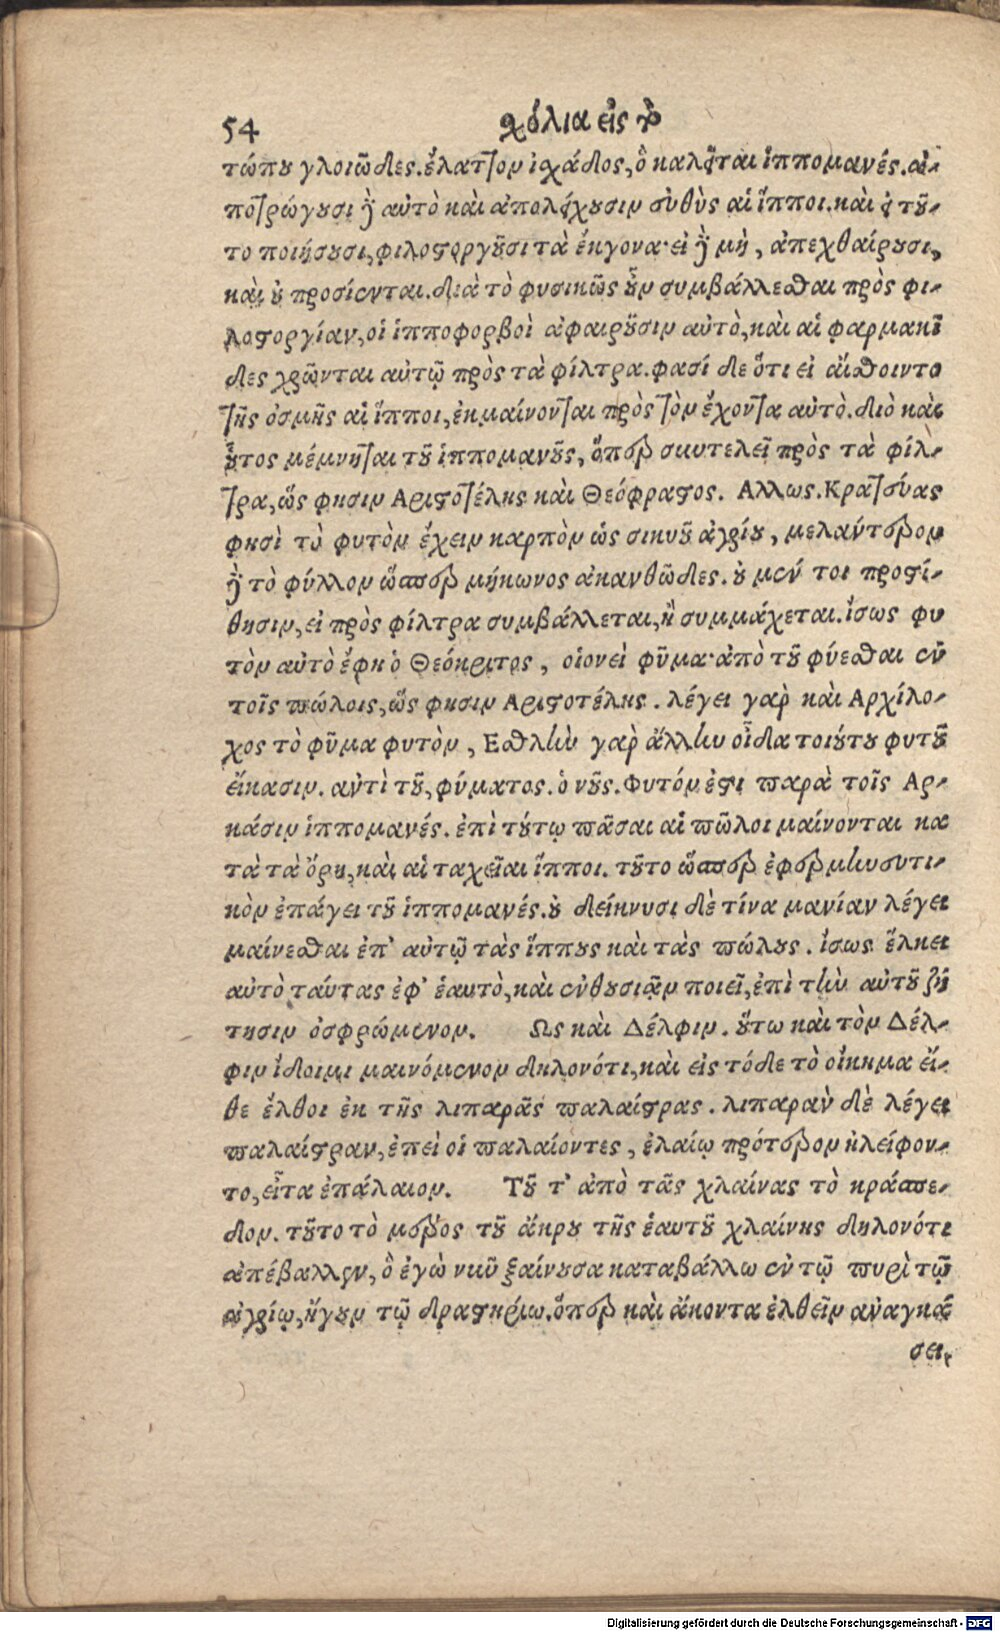 54 σχόλια εἰς τὸ
τώπου γλοιῶδες. ἔλαττον ἰσχάδος, ὃ καλεῖται ἱππομανές. ἀ-
ποτρώγουσι δὲ αὐτὸ καὶ ἀπολείχουσιν εὐθὺς αἱ ἵπποι. καὶ εἰ τοῦ-
το ποιήσουσι, φιλοστοργοῦσι τὰ ἔκγονα· εἰ δὲ μὴ, ἀπεχθαίρουσι,
καὶ οὐ προσίενται. διὰ τὸ φυσικῶς οὖν συμβάλλεσθαι πρὸς φι-
λοστοργίαν, οἱ ἱπποφορβοὶ ἀφαιροῦσιν αὐτὸ, καὶ αἱ φαρμακί
δες χρῶνται αὐτῷ πρὸς τὰ φίλτρα. φασί δε ὅτι εἰ αἴσθοιντο
τῆς ὀσμῆς αἱ ἵπποι, ἐκμαίνονται πρὸς τὸν ἔχοντα αὐτὸ. διὸ καὶ
οὗτος μέμνηται τοῦ ἱππομανοῦς, ὅπερ συντελεῖ πρὸς τὰ φίλ-
τρα, ὥς φησιν Αριστοτέλης καὶ Θεόφραστος. Αλλως. Κρατεύας
φησὶ τὸ φυτὸν ἔχειν καρπὸν ὡς σικυοῦ ἀγρίου, μελάντερον
δὲ τὸ φύλλον ὥσπερ μήκωνος ἀκανθῶδες. οὐ μέν τοι προστί-
θησιν, εἰ πρὸς φίλτρα συμβάλλεται, ἢ συμμάχεται. ἴσως φυ
τὸν αὐτὸ ἔφη ὁ Θεόκριτος, οἱονεὶ φῦμα· ἀπὸ τοῦ φύεσθαι ἐν
τοῖς πώλοις, ὥς φησιν Αριστοτέλης. λέγει γαρ καὶ Αρχίλο-
χος τὸ φῦμα φυτὸν, Εσθλὴν γαρ ἄλλην οἶδα τοιούτου φυτοῦ
εἴκασιν. ἀντὶ τοῦ, φύματος. ὁ νοῦς. Φυτόν ἐστι παρὰ τοῖς Αρ-
κάσιν ἱππομανές. ἐπὶ τούτῳ πᾶσαι αἱ πῶλοι μαίνονται κα
τὰ τὰ ὄρη, καὶ αἱ ταχεῖαι ἵπποι. τοῦτο ὥσπερ ἐφερμηνευτι-
κὸν ἐπάγει τοῦ ἱππομανές. οὐ δείκνυσι δὲ τίνα μανίαν λέγει
μαίνεσθαι ἐπ' αὐτῷ τὰς ἵππους καὶ τὰς πώλους. ἴσως ἕλκει
αὐτὸ ταύτας ἐφ' ἑαυτὸ, καὶ ἐνθουσιᾷν ποιεῖ, ἐπὶ τὴν αὐτοῦ ζή
τησιν ὀσφρώμενον. Ως καὶ Δέλφιν. οὕτω καὶ τὸν Δέλ-
φιν ἴδοιμι μαινόμενον δηλονότι, καὶ εἰς τόδε τὸ οἴκημα εἴ-
θε ἔλθοι ἐκ τῆς λιπαρᾶς παλαίστρας. λιπαρὰν δὲ λέγει
παλαίστραν, ἐπεὶ οἱ παλαίοντες, ἐλαίῳ πρότερον ἠλείφον-
το, εἶτα ἐπάλαιον. Τοῦ τ' ἀπὸ τᾶς χλαίνας τὸ κράσπε-
δον. τοῦτο τὸ μέρος τοῦ ἄκρου τῆς ἑαυτοῦ χλαίνης δηλονότι
ἀπέβαλλεν, ὃ ἐγὼ νῦν ξαίνουσα καταβάλλω ἐν τῷ πυρὶ τῷ
ἀγρίῳ, ἤγουν τῷ δραστηρίῳ. ὅπερ καὶ ἄκοντα ἐλθεῖν ἀναγκά
σει,
Digitalisierung gefördert durch die Deutsche Forschungsgemeinschaft - DFG